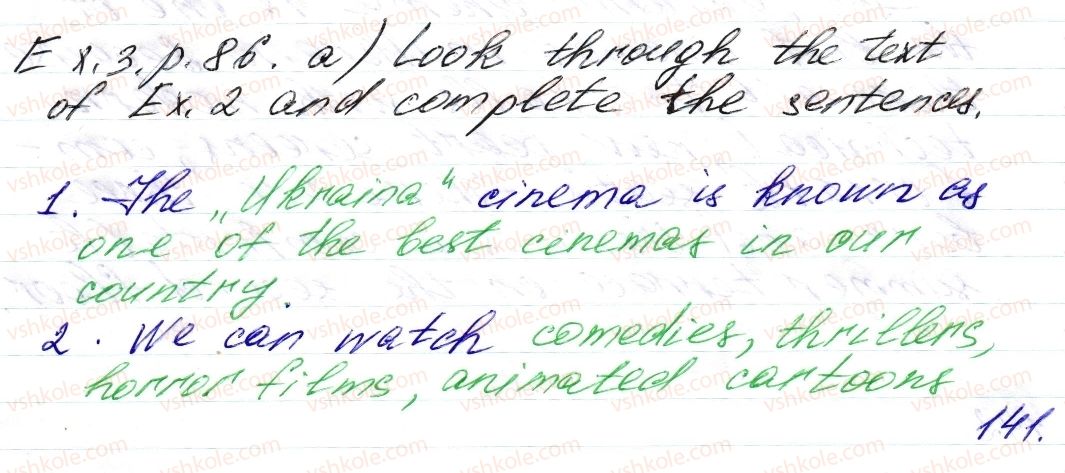 Ex.3.p.86. a) Look through the text
of Ex.2 and complete the sentences.
1. The „Ukraina" cinema is known as
one of the best cinemas in our
country.
2. We can watch comedies, thrillers,
horror films, animated cartoons
141.